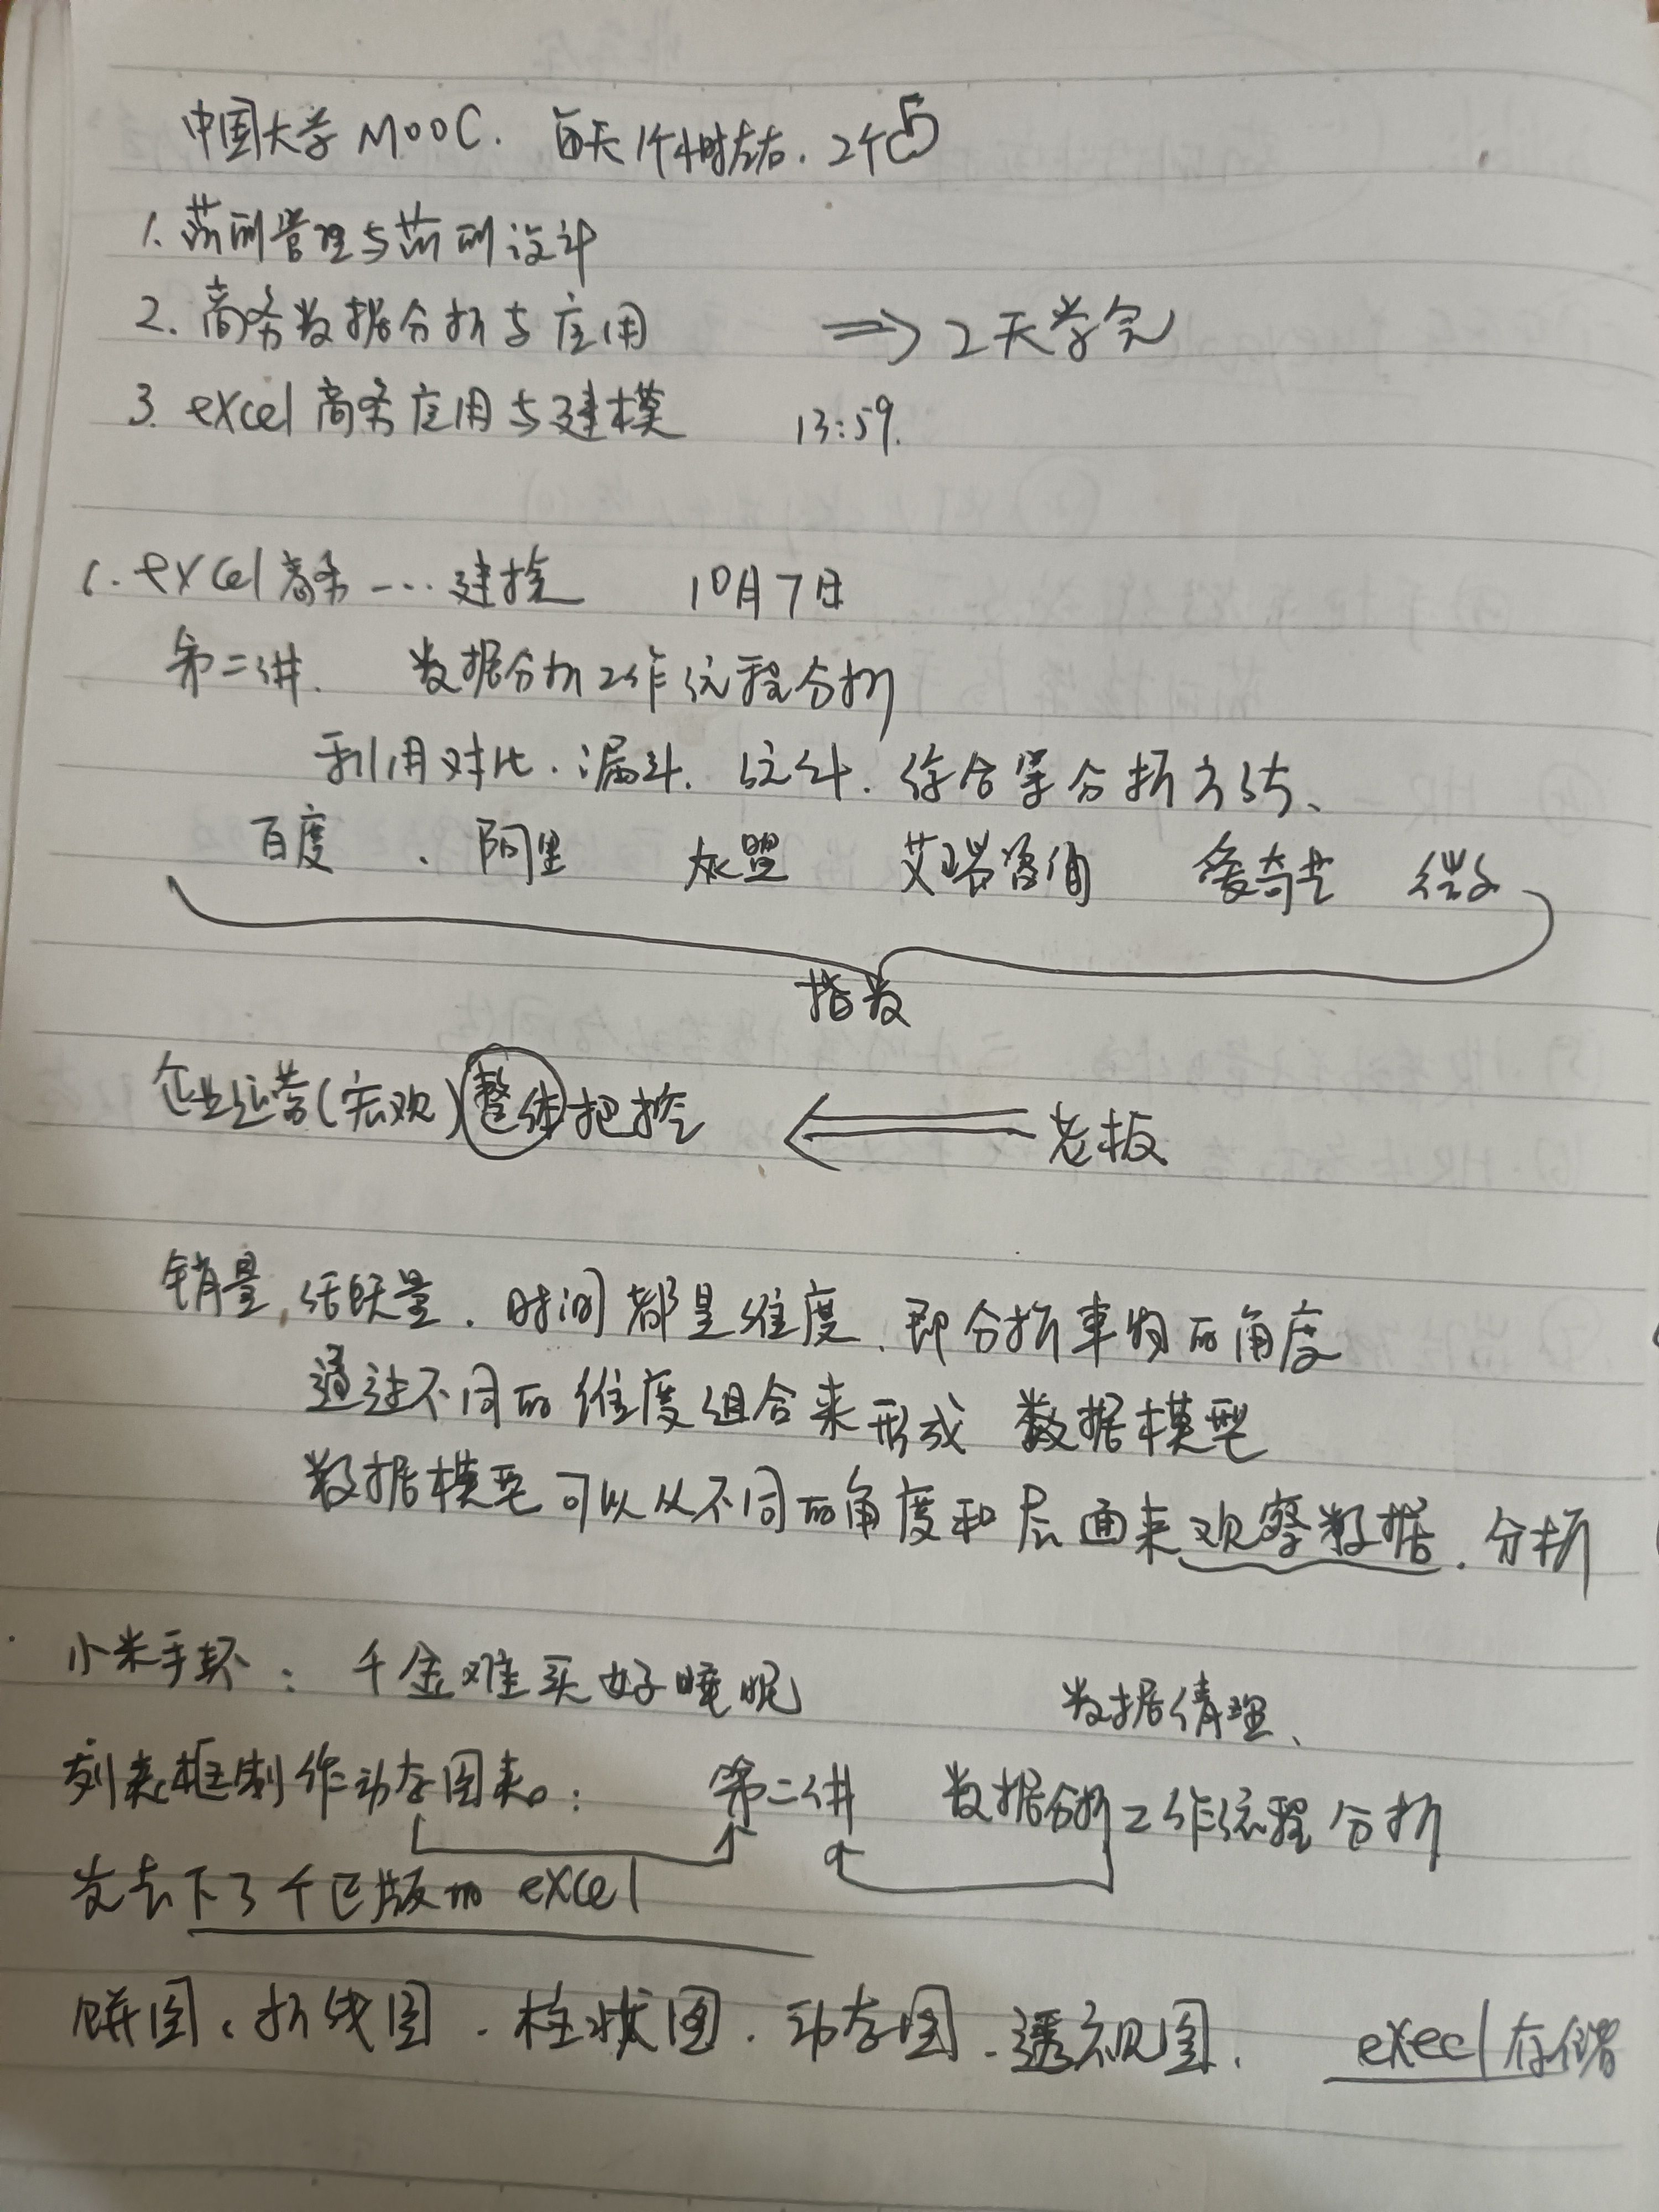 中国大学MOOC. 每天1个小时左右. 2个
1. 薪酬管理与薪酬设计
2. 商务数据分析与应用 ⇒ 2天学完
3. excel商务应用与建模 13:59.
1. excel商务……建模 10月7日
第二讲. 数据分析工作流程分析
利用对比. 漏斗. 统计. 综合等分析方法、
百度 、 阿里 友盟 艾瑞咨询 爱奇艺 微
指数
企业运营(宏观)整体把控 ⇐ 老板
销量, 活跃量. 时间都是维度. 即分析事物的角度
通过不同的维度组合来形成 数据模型
数据模型可以从不同的角度和层面来观察数据. 分析
小米手环: 千金难买好睡眠
数据清理、
列表框制作动态图表: 第二讲 数据分析工作流程分析
发去下了个正版的excel
饼图、折线图. 柱状图. 动态图. 透视图. execl存储